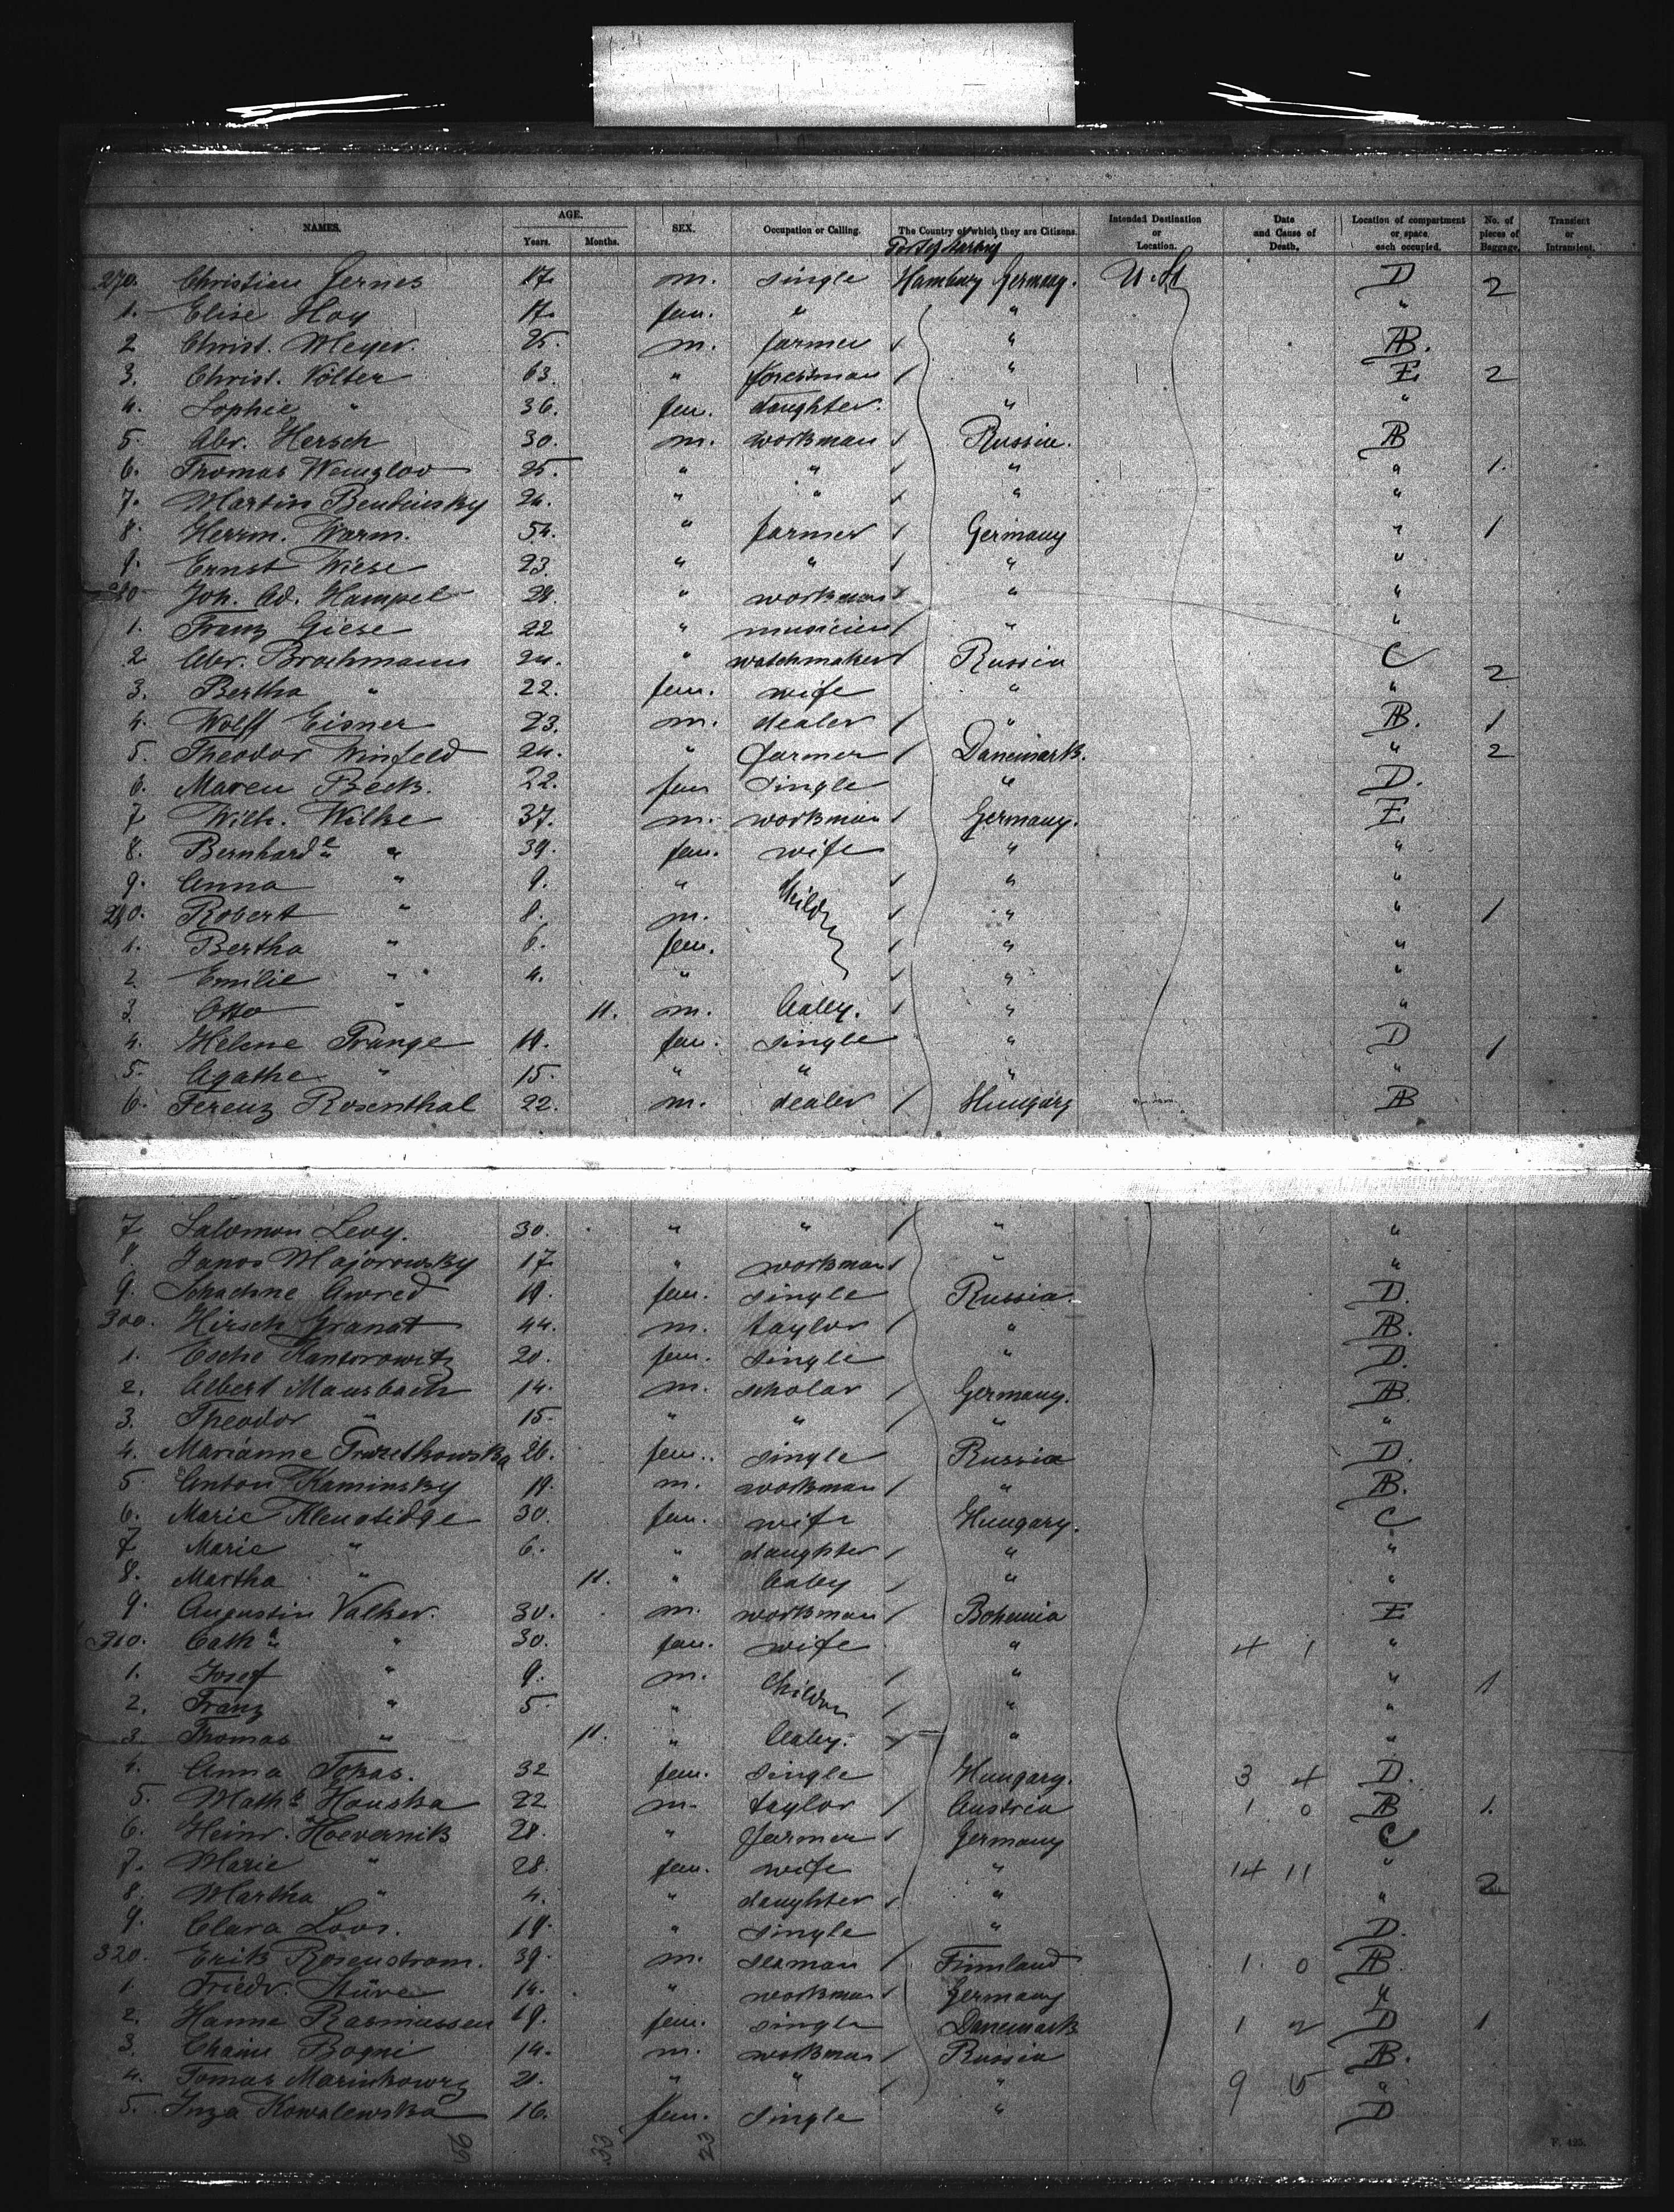 NAMES. AGE. Years. Months. SEX. Occupation or Calling. The Country of which they are Citizens. Intended Destination or Location. Date and Cause of Death. Location of compartment or space, each occupied. No. of pieces of Baggage. Transient or Intransient.
270. Christian Jernes 17. m. single Hamburg Germany. U. St D 2
1. Elise Hoy 17. fem. " " "
2 Christ. Meyer. 25. m. farmer " AB.
3. Christ. Völter 63. " " E 2
4. Sophie " 36. fem. daughter. " "
5. Abr. Hersch 30. m. workman Russia. AB
6. Thomas 25. " " " " 1.
7. Martin 24. " " " "
8. Herrm. Warm. 54. " farmer Germany " 1
9. Ernst Wiese 23. " " " "
280 Joh. Ad. Hampel 28. " workman " "
1. Franz Giese 22 " musician " "
2 Abr. Brochmann 24. " watchmaker Russia C
3. Bertha " 22. fem. wife " " 2
4. Wolff Eisner 23. m. dealer " AB. 1
5. Theodor Winfeld 24. " farmer Danemark. " 2
6. Maren Beck. 22. fem single " D.
7 Wilh. Wilke 37. m. workman Germany. E
8. Bernharde " 39. fem. wife " "
9. Anna " 9. " Childr " "
290. Robert " 8. m. " " 1
1. Bertha " 6. fem. " "
2. Emilie " 4. " " "
3. Otto " 11. m. baby. " "
4. Helene Prange 19. fem. single " D 1
5. Agathe " 15. " " " "
6. Ferenz Rosenthal 22. m. dealer Hungary AB
7 Salomon Levy. 30. " " " "
8. Janos Majorowsky 17 " workman " "
9. Awred 19. fem. single Russia D.
300. Hirsch Granat 44. m. taylor " AB.
1. Esche Kantorowitz 20. fem. single " D.
2. Albert Mausbach 14. m. scholar Germany. AB.
3. Theodor " 15. " " " "
4. Marianne 26. fem. single Russia D.
5. Anton Kaminsky 19. m. workman " AB.
6. Marie 30. fem. wife Hungary. C
7 Marie " 6. " daughter " "
8. Martha " 11. " baby " "
9. Augustin Valker. 30. m. workman Bohemia E
310. Cath " 30. fem. wife " 4 1 "
1. Josef " 9. m. Childr " " 1
2. Franz " 5. " " "
3. Thomas " 11. " baby. " "
4. Anna Topas. 32 fem. single Hungary. 3 4 D.
5. Hauska 22 m. taylor Austria 1 0 AB 1.
6. Heinr. Hoevernik 28. " farmer Germany C
7. Marie " 28. fem. wife " 14 11 "
8. Martha " 4. " daughter " " 2
9. Clara Loos. 19. " single " D.
320. Erik Rosenstrom. 39. m. seaman Finnland 1. 0 AB.
1. Friedr. Stüve 14. " workman Germany "
2. Hanne Rasmussen 19. fem. single Danemark 1 2 D 1
3. Chaim Bogni 14. m. workman Russia AB.
4. Tomas 21. " " " 9 5 "
5. Inza Kowalewska 16. fem. single " D
56 33 23
F. 425.